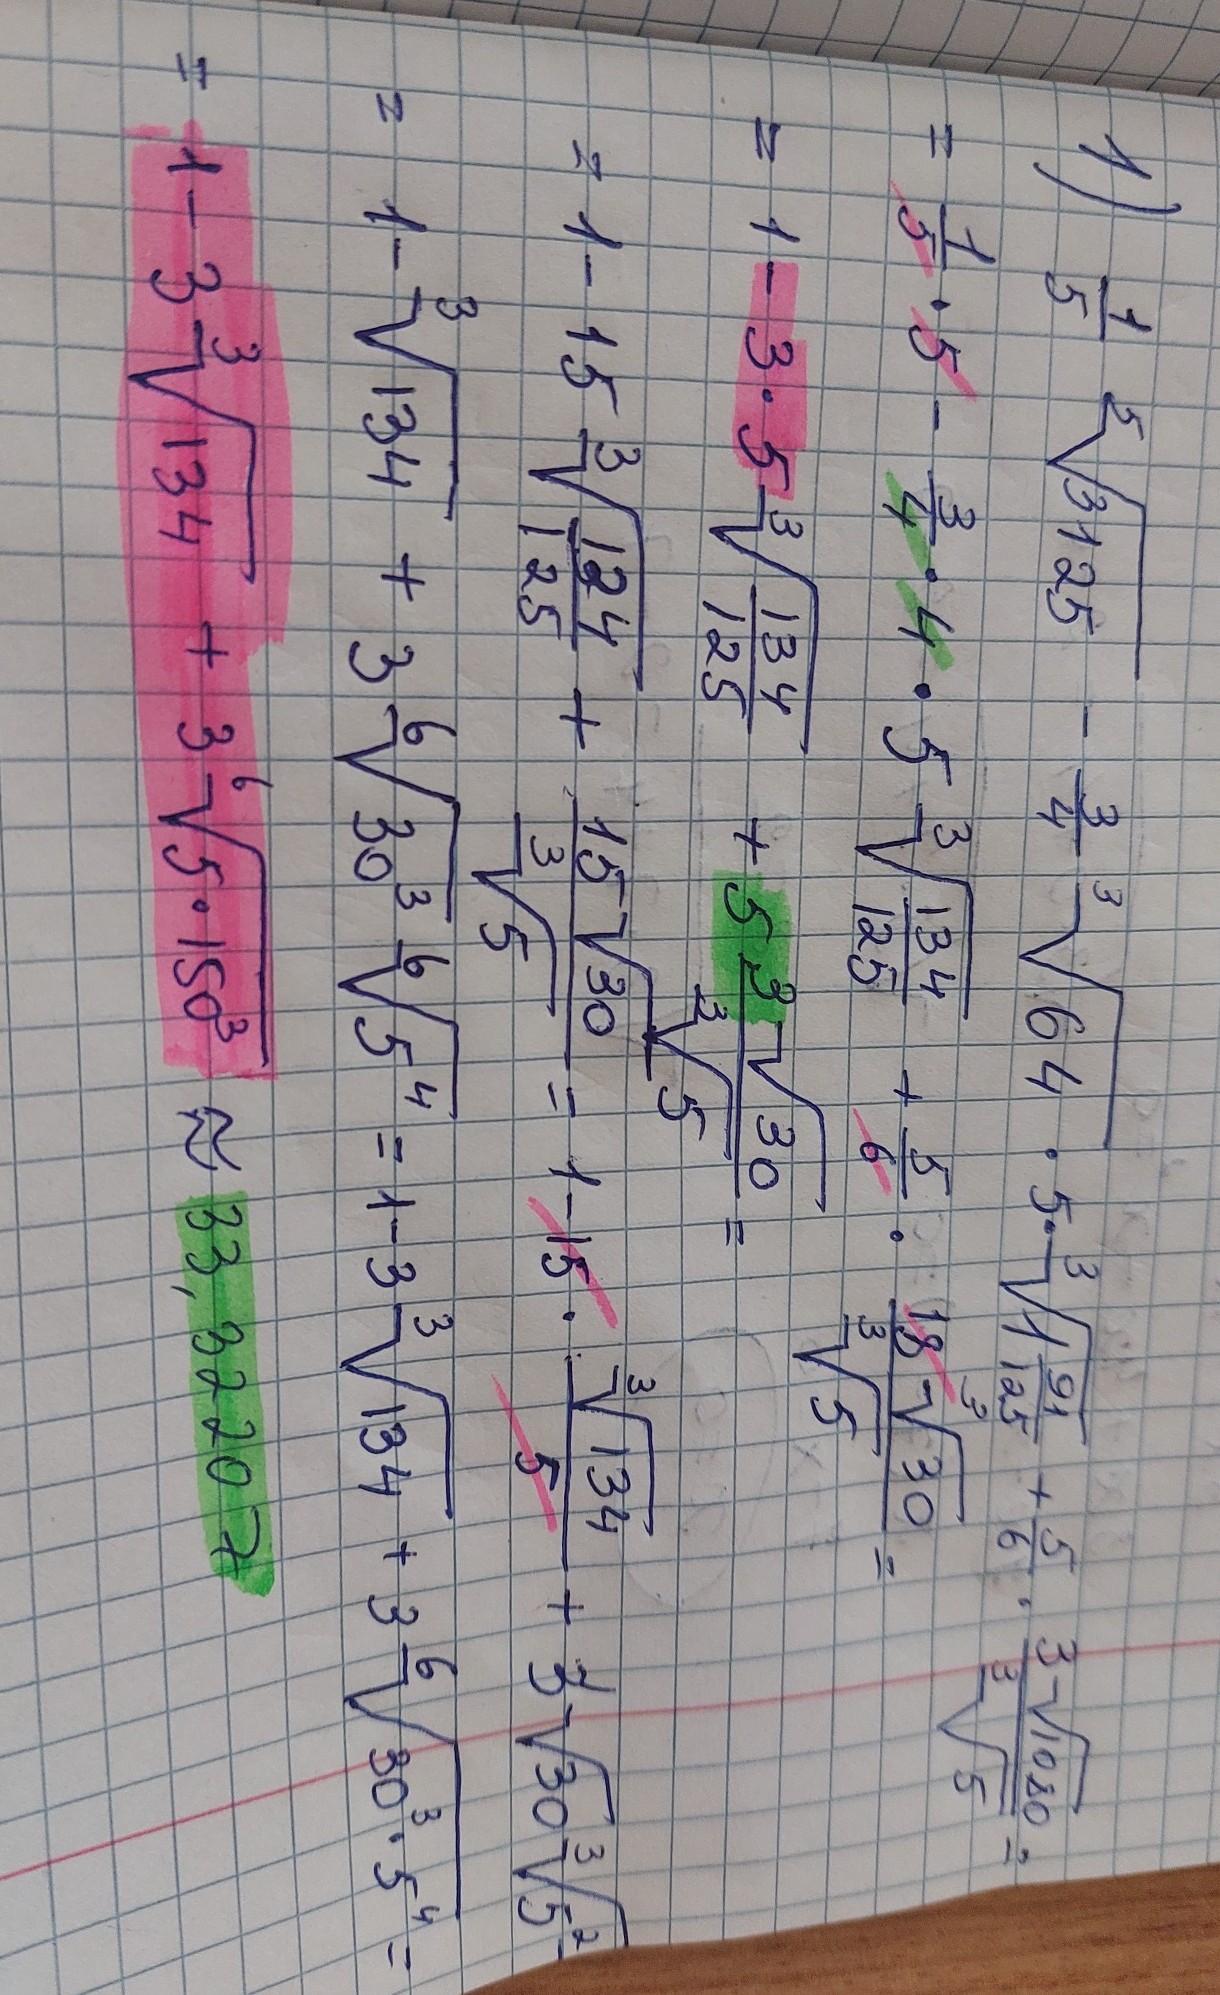 1) 1/5 ⁵√3125 - 3/4 ³√64 · 5 · ³√(1 91/125) + 5/6 · 3√1080/³√5 =
= 1/5 · 5 - 3/4 · 4 · 5 ³√(134/125) + 5/6 · 18√30/³√5 =
= 1 - 3 · 5 ³√(134/125) + 5 3√30/³√5 =
= 1 - 15 ³√(124/125) + 15√30/³√5 = 1 - 15 · ³√134/5 + 3√30 ³√5²
= 1 - ³√134 + 3 ⁶√30³ ⁶√5⁴ = 1 - 3 ³√134 + 3 ⁶√30³·5⁴ =
= 1 - 3 ³√134 + 3 ⁶√5·150³ ≈ 33,32207